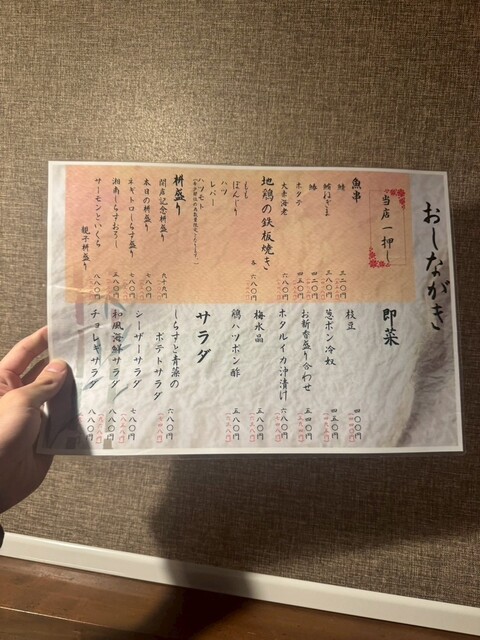 おしながき
当店一押し
魚串
鮭 三二〇円
鮪ねぎま 三八〇円
鰆 四二〇円
ホタテ 四二〇円
大赤海老 六八〇円
地鶏の鉄板焼き
各 六八〇円
もも
ぼんじり
ハツ
レバー
ハツモト
枡盛り
開店記念枡盛り
本日の枡盛り 七八〇円
ネギトロしらす盛り 七八〇円
湘南しらすおろし 五八〇円
サーモンといくら
親子枡盛り 八八〇円
即菜
枝豆 四〇〇円
葱ポン冷奴 三五〇円
お新香盛り合わせ 五四〇円
ホタルイカ沖漬け 六八〇円
梅水晶 五八〇円
鶏ハツポン酢 五八〇円
サラダ
しらすと青菜の
ポテトサラダ 六八〇円
シーザーサラダ 七八〇円
和風海鮮サラダ 八八〇円
チョレギサラダ 八八〇円